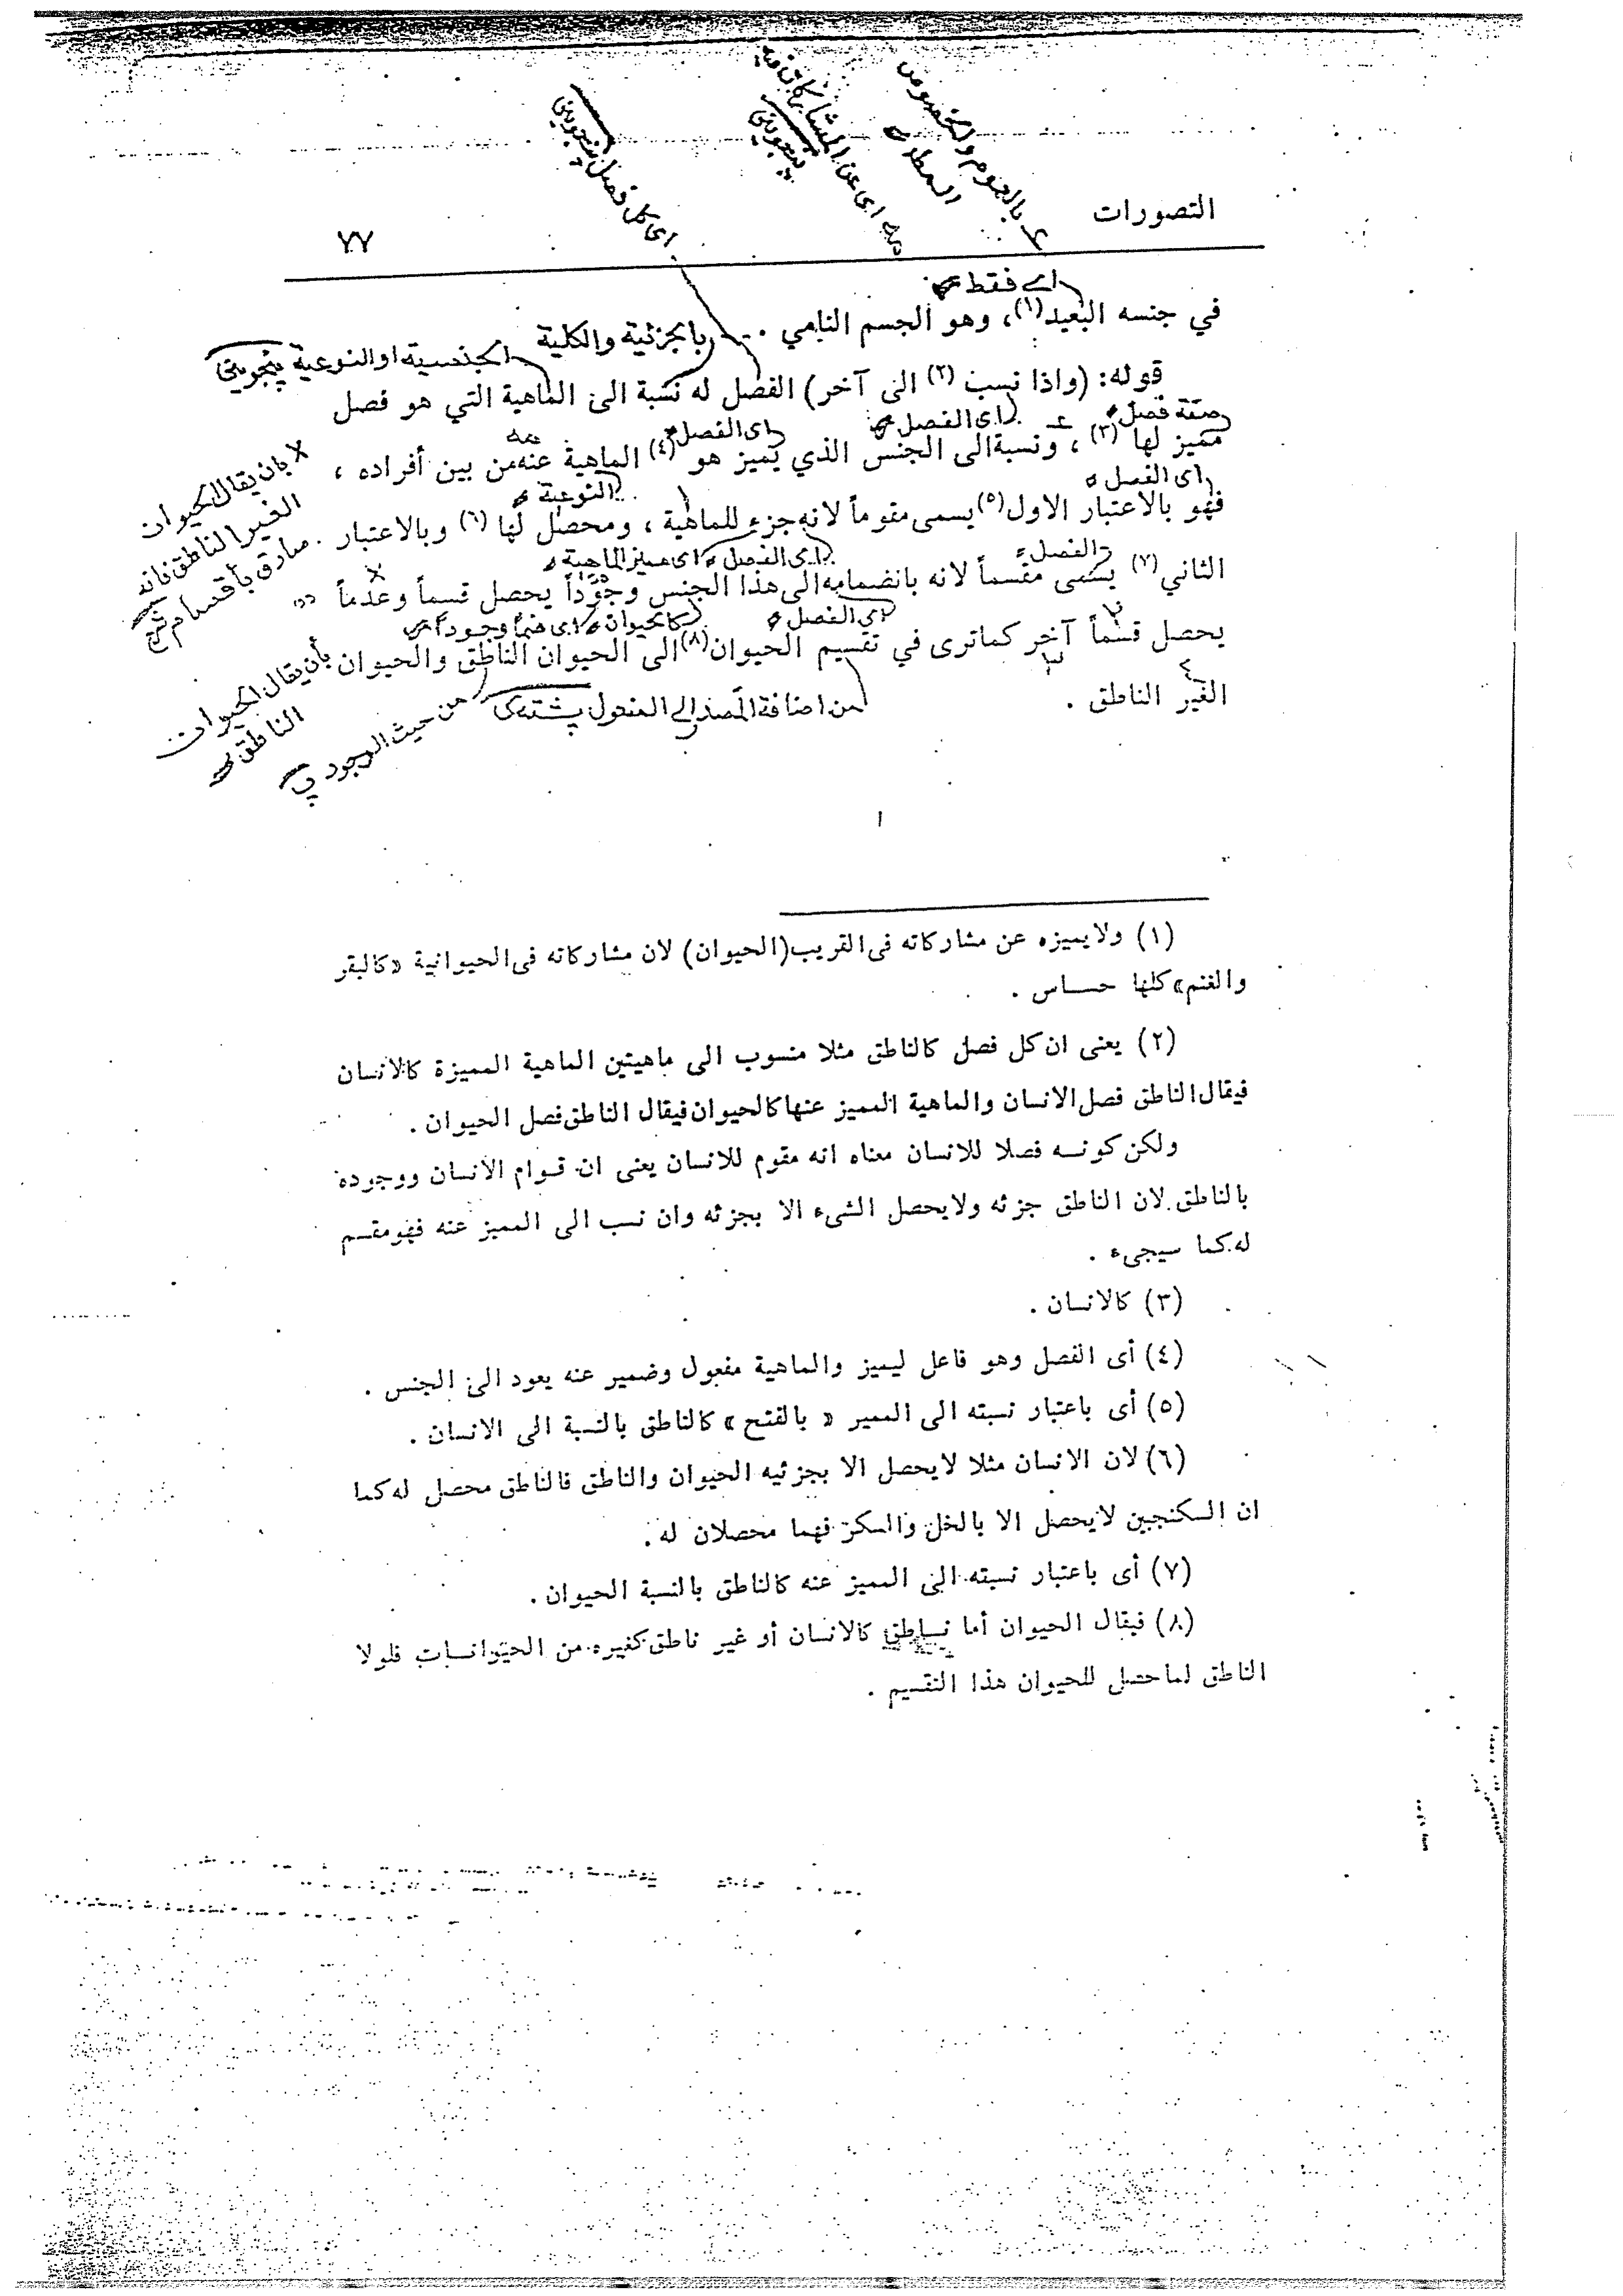 التصورات
٧٧
اى كل فصل پنجوينى
اي فقط
في جنسه البعيد(١)، وهو الجسم النامي .
بالجزئية والكلية
الجنسية او النوعية پنجوينى
قوله: (واذا نسب (٢) الى آخر) الفصل له نسبة الى الماهية التي هو فصل
صفة فصل
اى الفصل
اى الفصل
مميز لها (٣) ، ونسبة الى الجنس الذي يميز هو (٤) الماهية عنه من بين أفراده ،
اى الفصل
النوعية
فهو بالاعتبار الاول(٥) يسمى مقوماً لانه جزء للماهية ، ومحصل لها (٦) وبالاعتبار
الفصل
اى الفصل
اى مميز الماهية
الثاني(٧) يسمى مقسماً لانه بانضمامه الى هذا الجنس وجوداً يحصل قسماً وعدماً
اى الفصل
كالحيوان
يحصل قسماً آخر كماترى في تقسيم الحيوان(٨) الى الحيوان الناطق والحيوان
الغير الناطق .
من اضافة المصدر الى المفعول پشتهى
من حيث الوجود
× بان يقال الحيوان
الغير الناطق فانه
بأن يقال الحيوان
الناطق
(١) ولايميزه عن مشاركاته فى القريب(الحيوان) لان مشاركاته فى الحيوانية «كالبقر
والغنم» كلها حساس .
(٢) يعنى ان كل فصل كالناطق مثلا منسوب الى ماهيتين الماهية المميزة كالانسان
فيقال الناطق فصل الانسان والماهية المميز عنها كالحيوان فيقال الناطق فصل الحيوان .
ولكن كونه فصلا للانسان معناه انه مقوم للانسان يعنى ان قوام الانسان ووجوده
بالناطق لان الناطق جزئه ولايحصل الشىء الا بجزئه وان نسب الى المميز عنه فهو مقسم
له كما سيجىء .
(٣) كالانسان .
(٤) أى الفصل وهو فاعل ليميز والماهية مفعول وضمير عنه يعود الى الجنس .
(٥) أى باعتبار نسبته الى المميز « بالفتح » كالناطق بالنسبة الى الانسان .
(٦) لان الانسان مثلا لايحصل الا بجزئيه الحيوان والناطق فالناطق محصل له كما
ان السكنجبين لايحصل الا بالخل والسكر فهما محصلان له .
(٧) أى باعتبار نسبته الى المميز عنه كالناطق بالنسبة الحيوان .
(٨) فيقال الحيوان أما ناطق كالانسان أو غير ناطق كغيره من الحيوانات فلولا
الناطق لما حصل للحيوان هذا التقسيم .